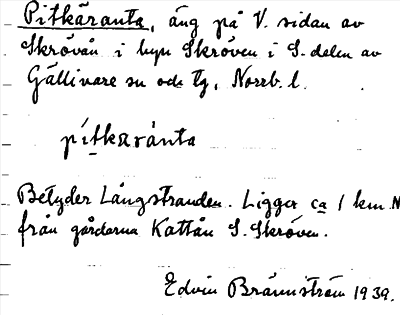 Pitkäranta, äng på V. sidan av
Skrövån i byn Skröven i S. delen av
Gällivare sn och tg, Norrb. l.
pitkaránta
Betyder Långstranden. Ligger ca 1 km N
från gårdarna Kattån S. Skröven.
Edvin Brännström 1939.